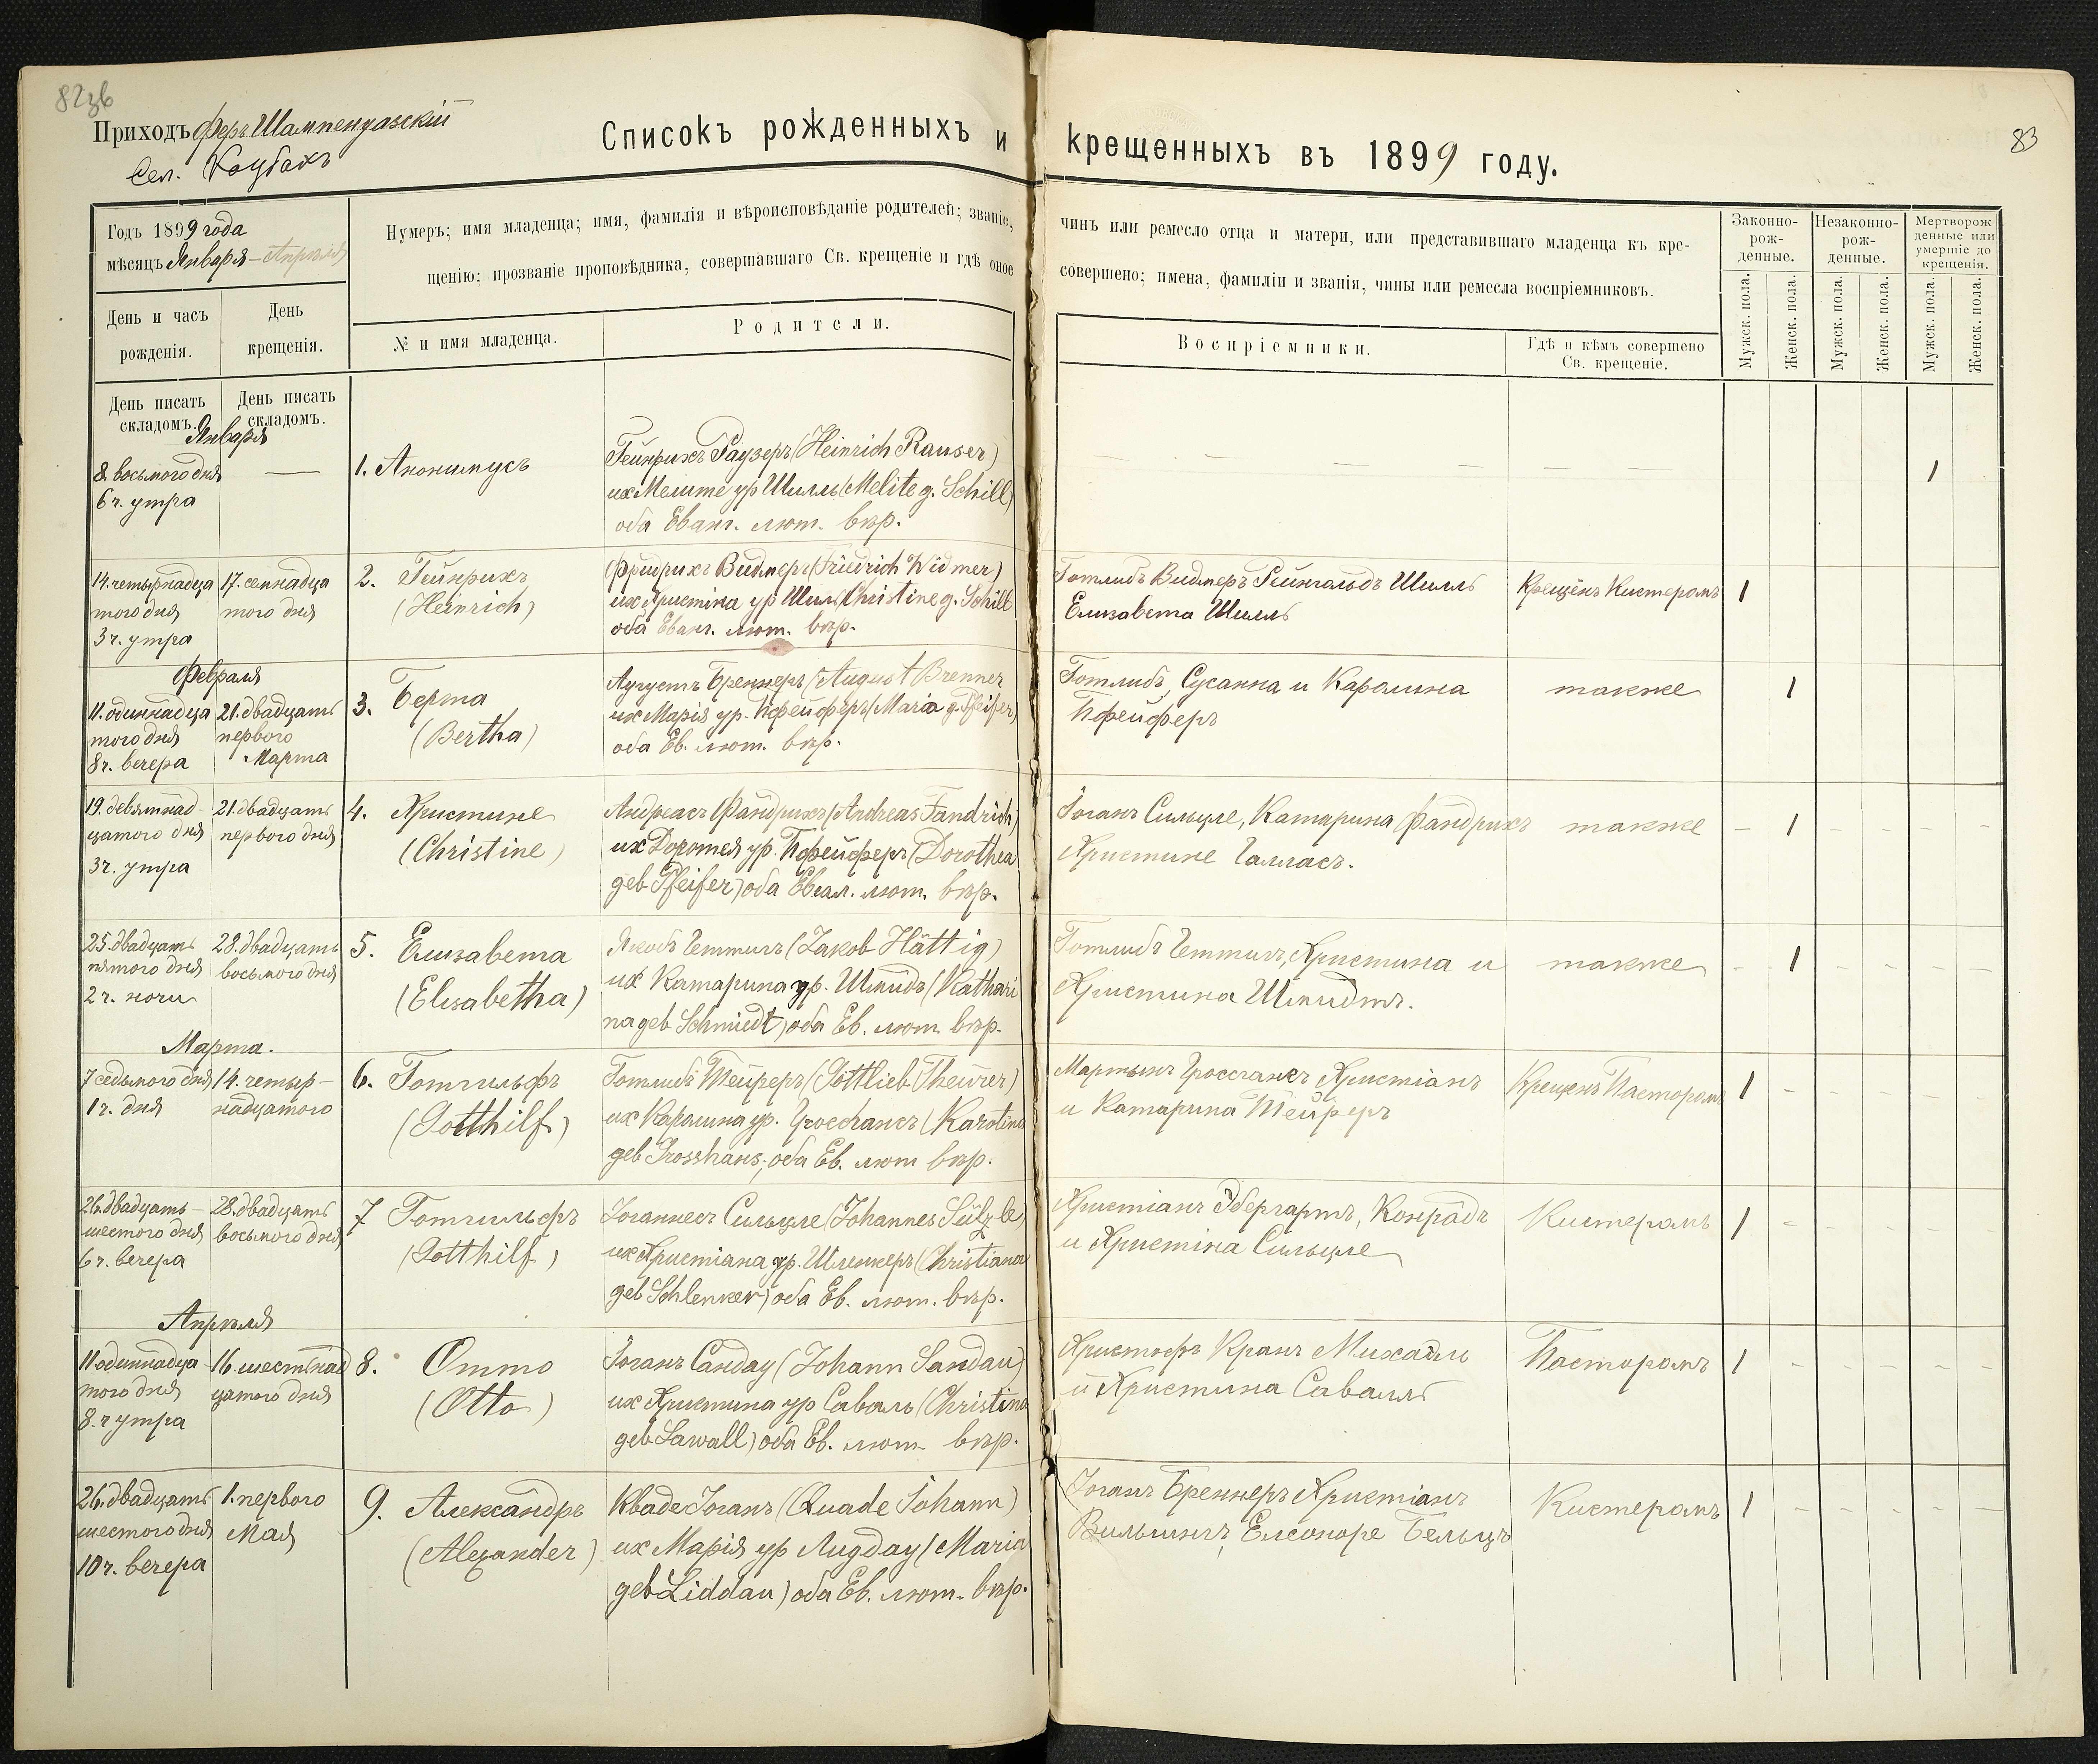 82зв
83
Приходъ Феръ Шампенуазскій
Сел. Коубахъ
Списокъ рожденныхъ и крещенныхъ въ 1899 году.
Годъ 1899 года
мѣсяцъ Января – Апрѣля
Нумеръ; имя младенца; имя, фамилія и вѣроисповѣданіе родителей; званіе, чинъ или ремесло отца и матери, или представившаго младенца къ кре-
щенію; прозваніе проповѣдника, совершавшаго Св. крещеніе и гдѣ оное совершено; имена, фамиліи и званія, чины или ремесла воспріемниковъ.
Законно-
рож-
денные.
Незаконно-
рож-
денные.
Мертворож
денные или
умершіе до
крещенія.
День и часъ
рожденія.
День
крещенія.
№ и имя младенца.
Родители.
Воспріемники.
Гдѣ и кѣмъ совершено
Св. крещеніе.
Мужск. пола.
Женск. пола.
Мужск. пола.
Женск. пола.
Мужск. пола.
Женск. пола.
День писать
складомъ.
День писать
складомъ.
Января
8. восьмого дня
6 ч. утра
—
1. Анонимусъ
Гейнрихъ Раузеръ (Heinrich Rauser)
их Мелите ур Шилль (Melite g. Schill)
оба Еванг. лют. вѣр.
— — — — — — —
1
14. четырнадца
того дня
3 ч. утра
17. семнадца
того дня
2. Гейнрихъ
(Heinrich)
Фридрихъ Видмеръ (Friedrich Widmer)
их Христина ур Шилль (Christine g. Schill
оба Еванг. лют. вѣр.
Готлибъ Видмеръ Рейнгальдъ Шилль
Елизабета Шилль
Крещёнъ Кистеромъ
1
Февраля
11. одиннадца
того дня
8 ч. вечера
21. двадцать
первого
Марта
3. Берта
(Bertha)
Аугустъ Бреннеръ (August Brenner
их Марія ур. Пфейферъ (Maria g. Pfeifer)
оба Ев. лют. вѣр.
Готлибъ, Сусанна и Каролина
Пфейферъ
также
1
19. девятнад-
цатого дня
3 ч. утра
21. двадцать
первого дня
4. Христине
(Christine)
Андреасъ Фандрихъ (Andreas Fandrich)
их Доротея ур. Пфейферъ (Dorothea
geb Pfeifer) оба Еван. лют. вѣр.
Іоганъ Сильцле, Катарина Фандрихъ
Христине Галласъ.
также
– 1 – – – –
25. двадцать
пятого дня
2 ч. ночи
28. двадцать
восьмого дня
5. Елизабета
(Elisabetha)
Якобъ Геттигъ (Jakob Hättig)
их Катарина ур. Шмидъ (Kathari
na geb Schmiedt) оба Ев. лют. вѣр.
Готлибъ Геттигъ, Христина и
Христина Шмидтъ.
также
– 1 – – – –
Марта.
7 седьмого дня
1 ч. дня
14. четыр-
надцатого
6. Готгильфъ
(Gotthilf)
Готлибъ Тейреръ (Gottlieb Theurer)
их Каролина ур. Гросгансъ (Karolina
geb Grosshans; оба Ев. лют вѣр.
Мартынъ Гроссгансъ Христіанъ
и Катарина Тейреръ
Крещенъ Пасторомъ
1 – – – – –
26. двадцать-
шестого дня
6 ч. вечера
28. двадцать
восьмого дня
7 Готгильфъ
(Gotthilf)
Іоганнесъ Сильцле (Johannes Sülzle)
их Христіана ур. Шленкеръ (Christiana
geb Schlenker) оба Ев. лют. вѣр.
Христіанъ Эбергартъ, Конрадъ
и Христіна Сильцле
Кистеромъ
1 – – – – –
Апрѣля
11 одиннадца
того дня
8. ч утра
16. шестнад
цатого дня
8. Отто
(Otto)
Іоганъ Сандау (Johann Sandau)
их Христина ур Саваль (Christina
geb Sawall) оба Ев. лют. вѣр.
Христофъ Кранъ Михаэль
и Христина Савалль
Пасторомъ
1 – – – – –
26. двадцать
шестого дня
10 ч. вечера
1. первого
Мая
9. Александръ
(Alexander)
Кваде Іоганъ (Quade Johann)
их Марія ур Лиддау (Maria
geb Liddau) оба Ев. лют. вѣр.
Іоганъ Бреннеръ Христіанъ
Елеоноре Бельцъ
Кистеромъ
1 – – – – –